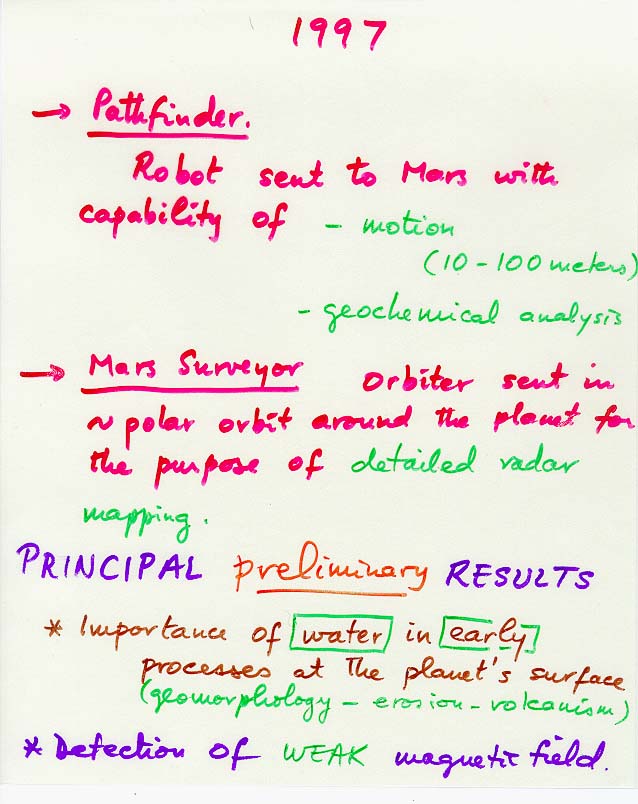 1997
→ Pathfinder.
Robot sent to Mars with
capability of - motion
(10-100 meters)
- geochemical analysis
→ Mars Surveyor Orbiter sent in
~ polar orbit around the planet for
the purpose of detailed radar
mapping.
PRINCIPAL preliminary RESULTS
* Importance of water in early
processes at the planet's surface
(geomorphology - erosion - volkanism)
* Detection of WEAK magnetic field.